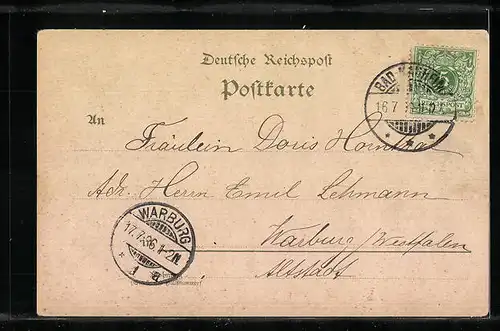 Deutsche Reichspost
Postkarte
BAD
16.7.
5
An
Fräulein Doris
Adr. Herrn Emil Lehmann
WARBURG
17.7.96 1-2N.
Warburg/Westfalen
Altstadt